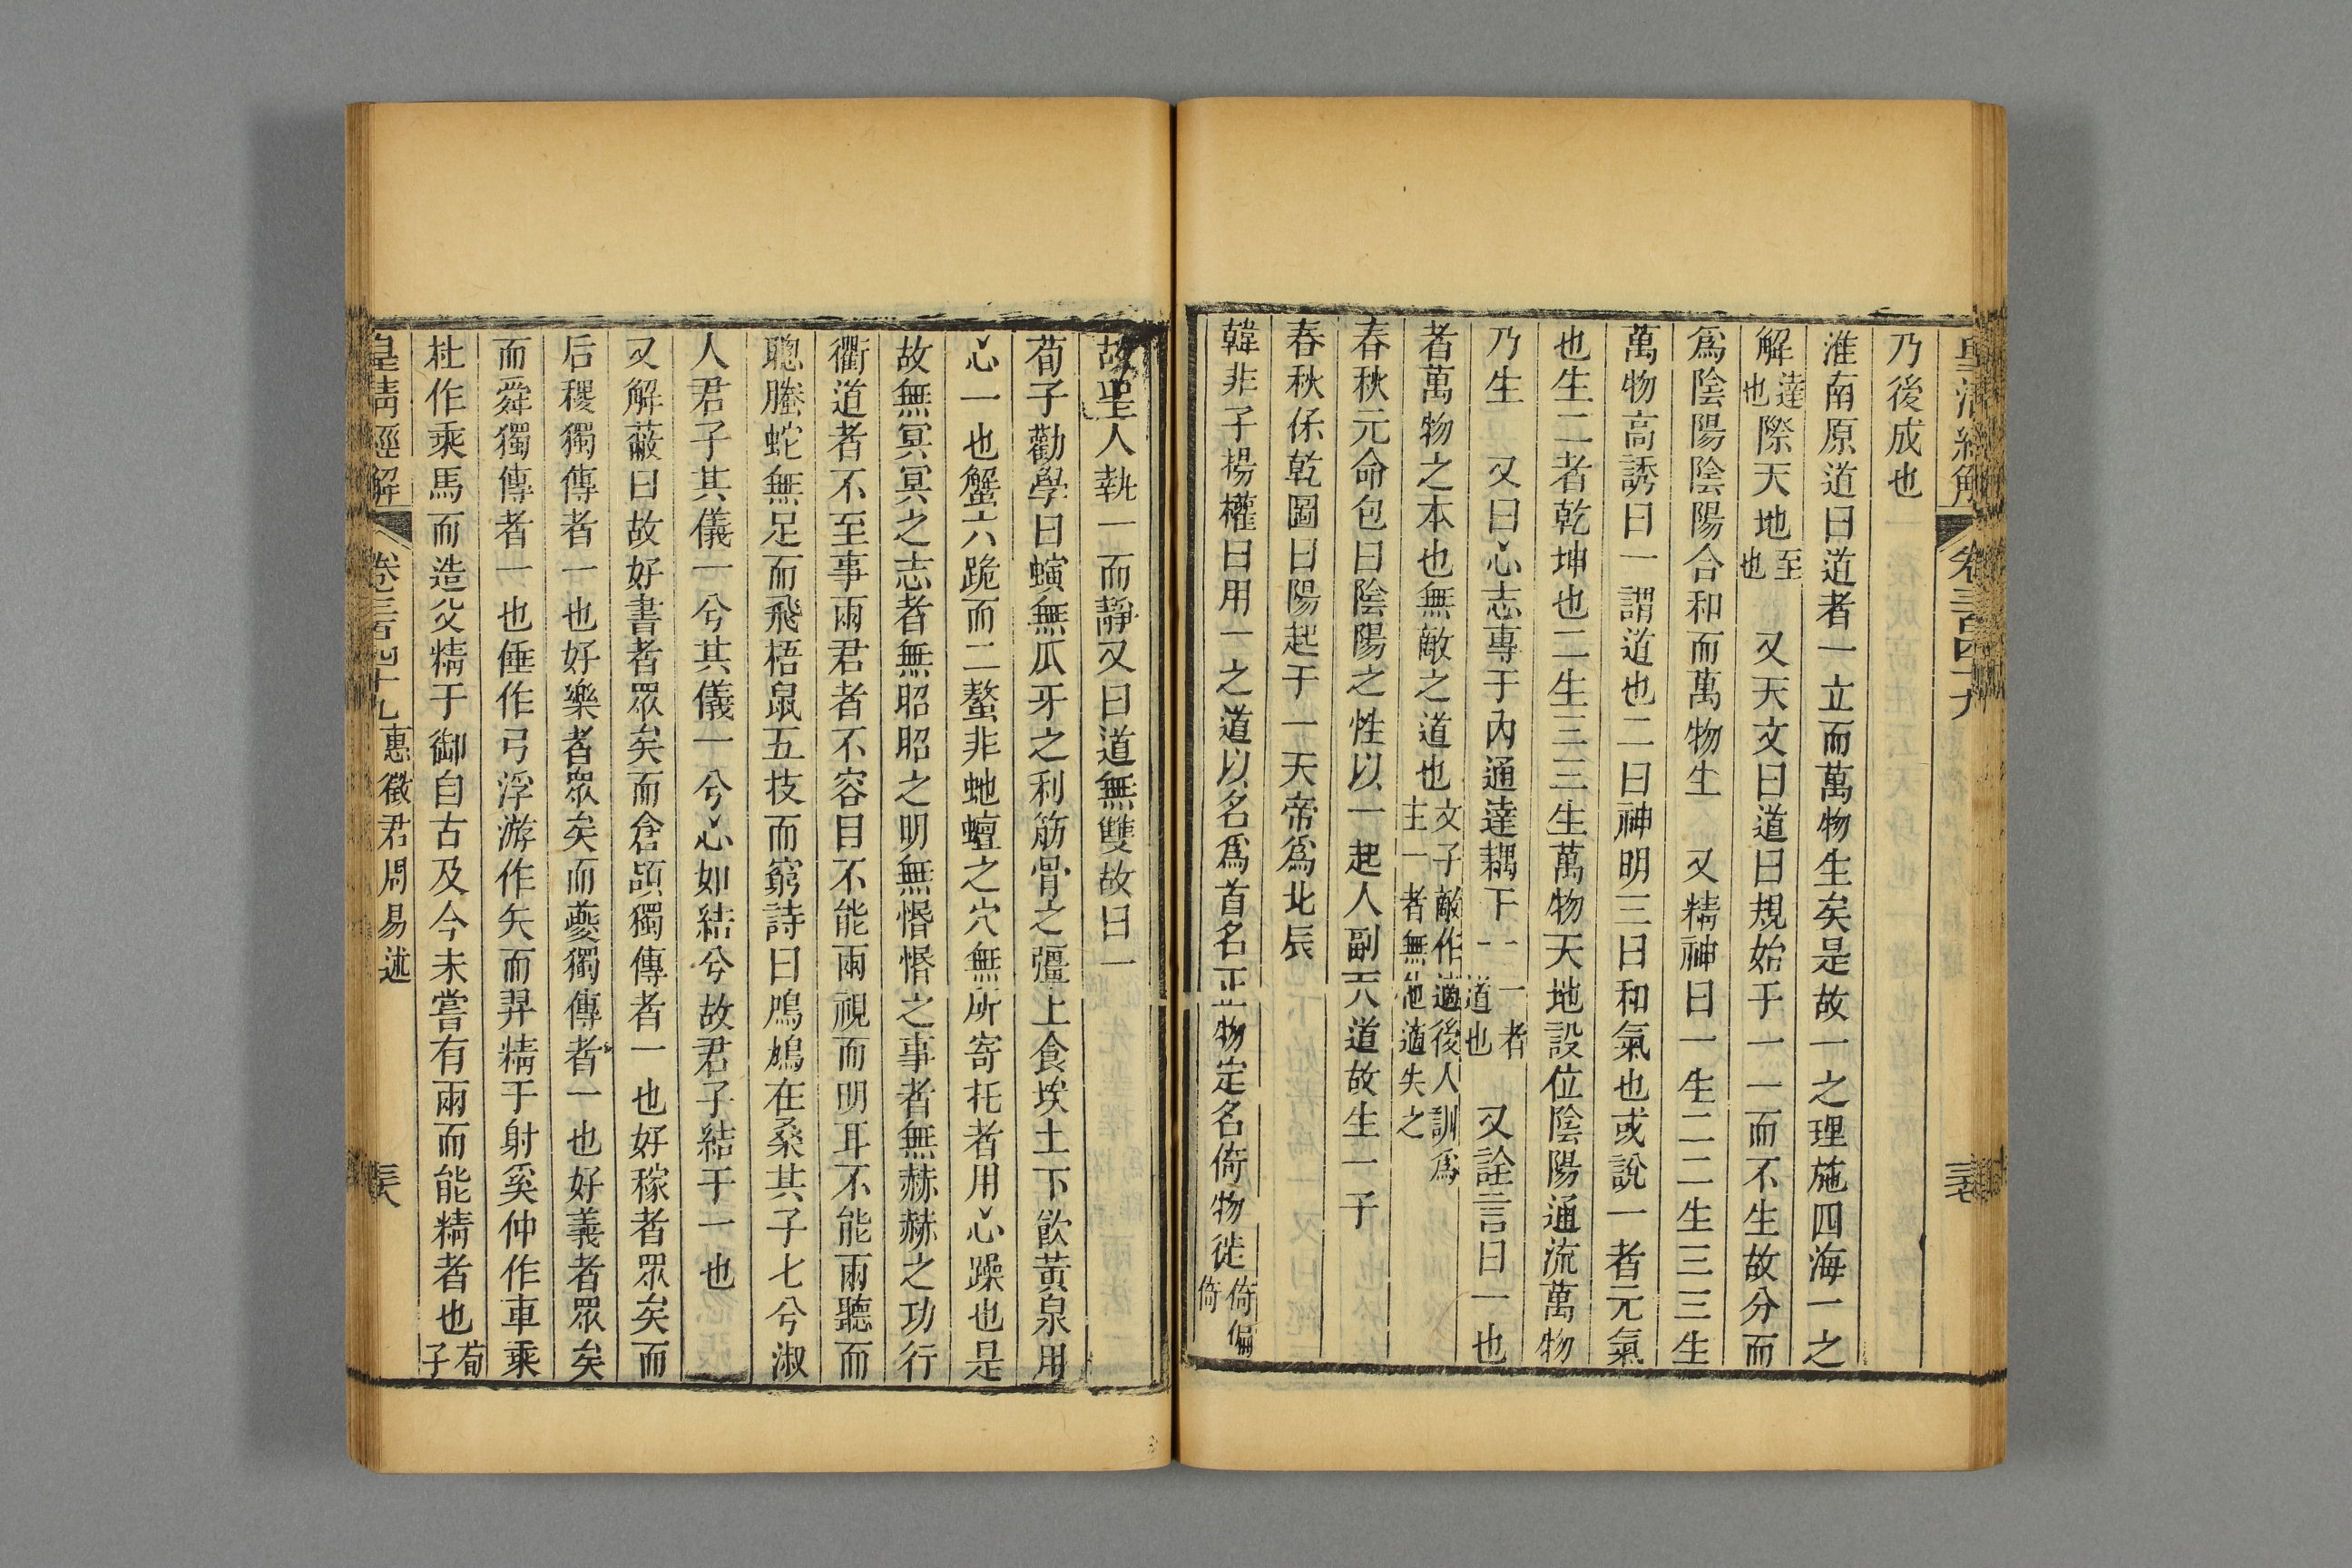 皇清經解 卷三百四十九 三七
乃後成也
淮南原道曰道者一立而萬物生矣是故一之理施四海一之
解達也際天地至也 又天文曰道曰規始于一一而不生故分而
爲陰陽陰陽合和而萬物生 又精神曰一生二二生三三生
萬物高誘曰一謂道也二曰神明三曰和氣也或說一者元氣
也生二者乾坤也二生三三生萬物天地設位陰陽通流萬物
乃生 又曰心志專于內通達耦于一一者道也 又詮言曰一也
者萬物之本也無敵之道也文子敵作適後人訓爲主一者無他適失之
春秋元命包曰陰陽之性以一起人副天道故生一子
春秋保乾圖曰陽起于一天帝爲北辰
韓非子揚權曰用一之道以名爲首名正物定名倚物徙倚偏倚
故聖人執一而靜又曰道無雙故曰一
荀子勸學曰螾無爪牙之利筋骨之彊上食埃土下飲黃泉用
心一也蟹六跪而二螯非虵蟺之穴無所寄托者用心躁也是
故無冥冥之志者無昭昭之明無惛惛之事者無赫赫之功行
衢道者不至事兩君者不容目不能兩視而明耳不能兩聽而
聰螣蛇無足而飛梧鼠五技而窮詩曰鳲鳩在桑其子七兮淑
人君子其儀一兮其儀一兮心如結兮故君子結于一也
又解蔽曰故好書者眾矣而倉頡獨傳者一也好稼者眾矣而
后稷獨傳者一也好樂者眾矣而夔獨傳者一也好義者眾矣
而舜獨傳者一也倕作弓浮游作矢而羿精于射奚仲作車乘
杜作乘馬而造父精于御自古及今未嘗有兩而能精者也荀子
皇清經解 卷三百四十九 惠徵君周易述 三八